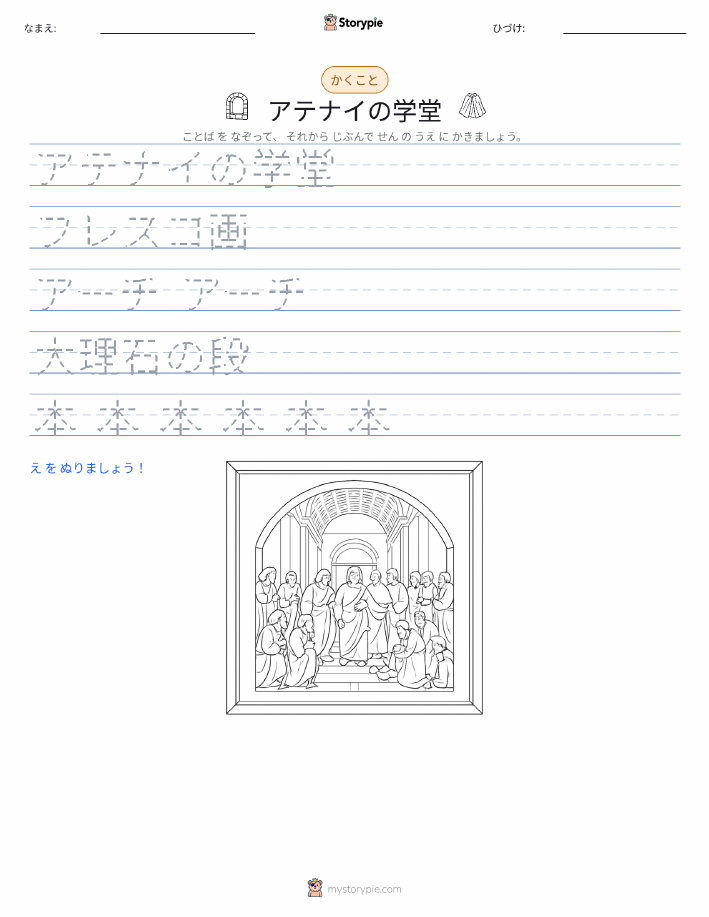 なまえ:
Storypie
ひづけ:
かくこと
アテナイの学堂
ことば を なぞって、 それから じぶんで せん の うえ に かきましょう。
アテナイの学堂
フレスコ画
アーチ アーチ
大理石の段
本 本 本 本 本 本
え を ぬりましょう！
mystorypie.com